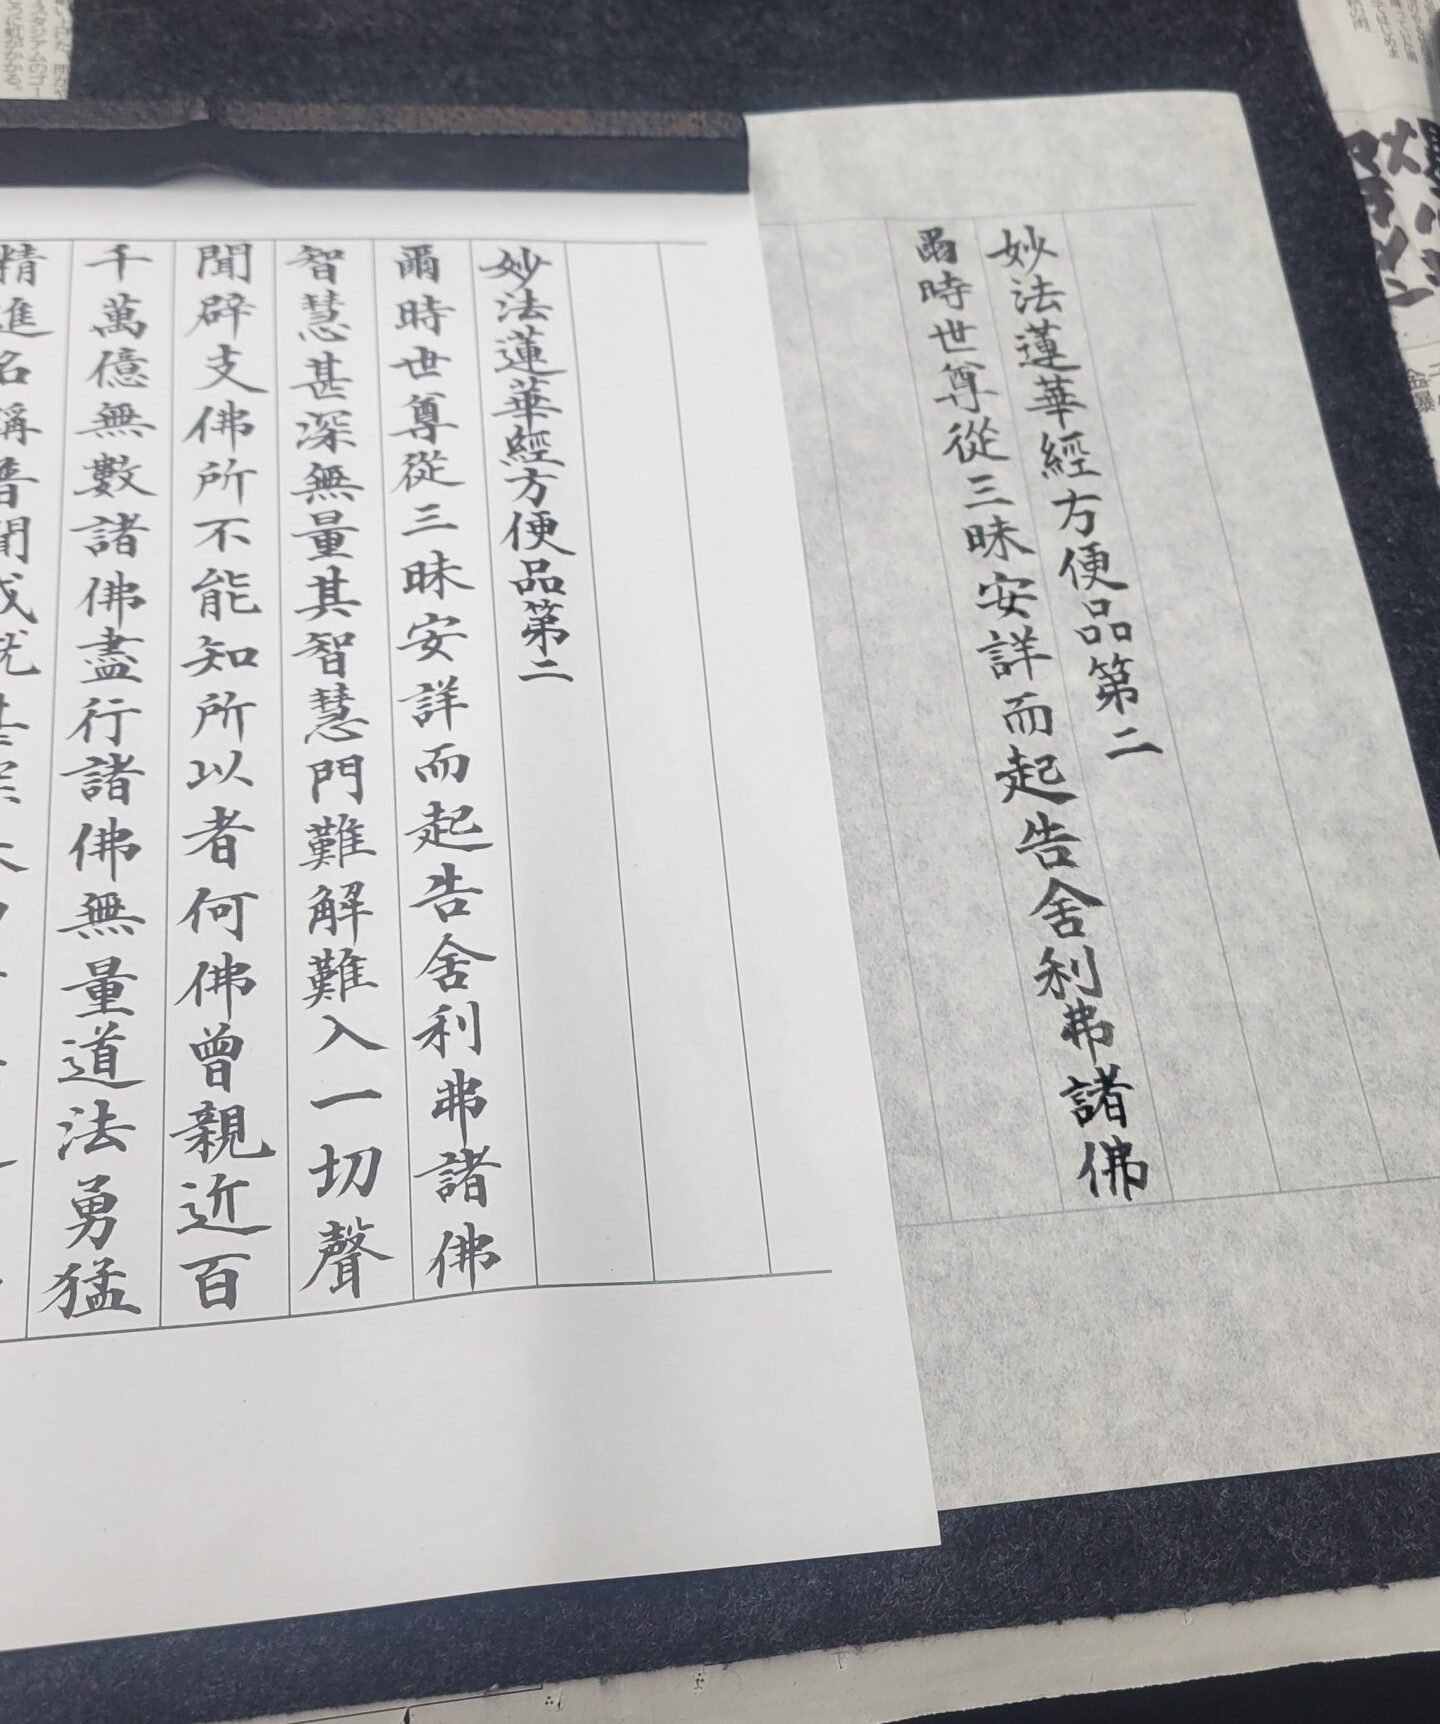 妙法蓮華經方便品第二
爾時世尊從三昧安詳而起告舍利弗諸佛
妙法蓮華經方便品第二
爾時世尊從三昧安詳而起告舍利弗諸佛
智慧甚深無量其智慧門難解難入一切聲
聞辟支佛所不能知所以者何佛曾親近百
千萬億無數諸佛盡行諸佛無量道法勇猛
精進名稱普聞成就甚深